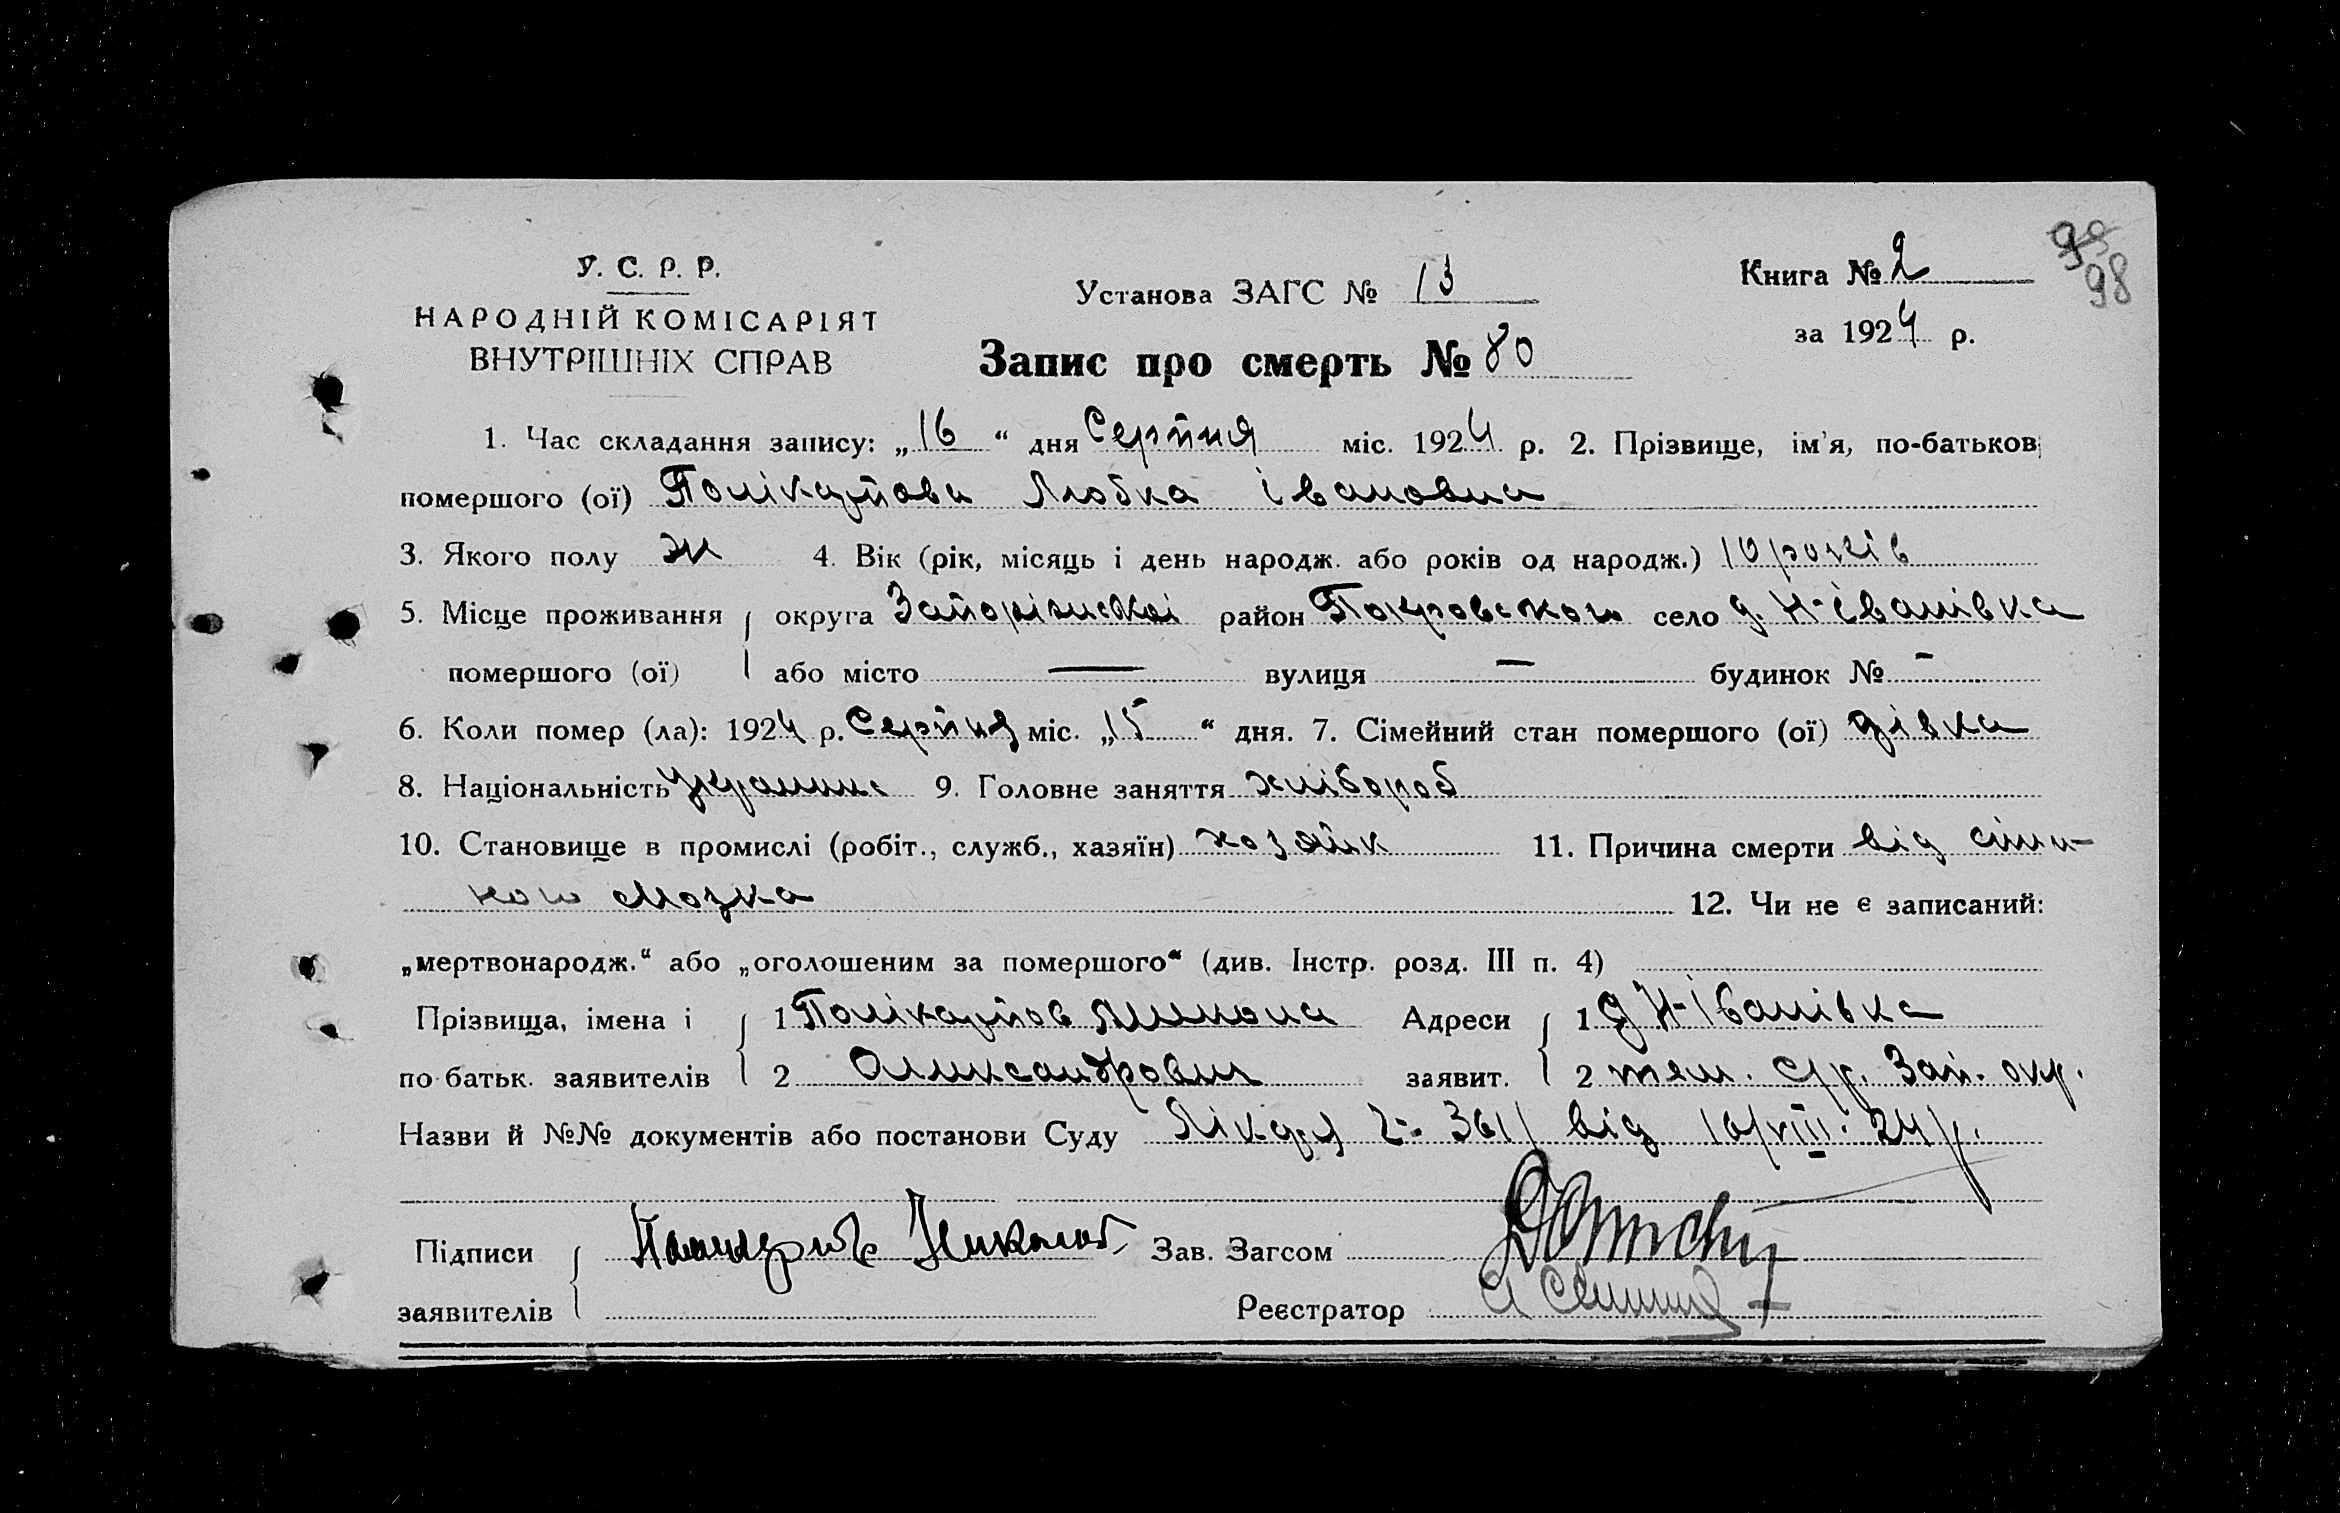 99
98
У. С. Р. Р.
НАРОДНІЙ КОМІСАРІЯТ
ВНУТРІШНІХ СПРАВ
Установа ЗАГС № 13
Книга № 2
за 1924 р.
Запис про смерть № 80
1. Час складання запису: „16“ дня Серпня міс. 1924 р. 2. Прізвище, ім'я, по-батькові
помершого (ої) Полікарпова Любка Івановна
3. Якого полу ж 4. Вік (рік, місяць і день народж. або років од народж.) 10 років
5. Місце проживання округа Запоріжської район Покровського село д. Н-Іванівка
помершого (ої) або місто — вулиця — будинок № -
6. Коли помер (ла): 1924 р. Серпня міс. „15“ дня. 7. Сімейний стан помершого (ої) дівка
8. Національність 9. Головне заняття хлібороб
10. Становище в промислі (робіт., служб., хазяїн) хозяйк 11. Причина смерти від
мозка 12. Чи не є записаний:
„мертвонародж.“ або „оголошеним за помершого“ (див. Інстр. розд. III п. 4)
Прізвища, імена і 1 Полікарпов Адреси 1 д Н-Іванівка
по батьк. заявителів 2 Олександрович заявит. 2 теж. с/р. Зап. окр.
Назви й №№ документів або постанови Суду 3611 від 16/VIII. 24 р.
Підписи Николай Зав. Загсом
заявителів Реєстратор